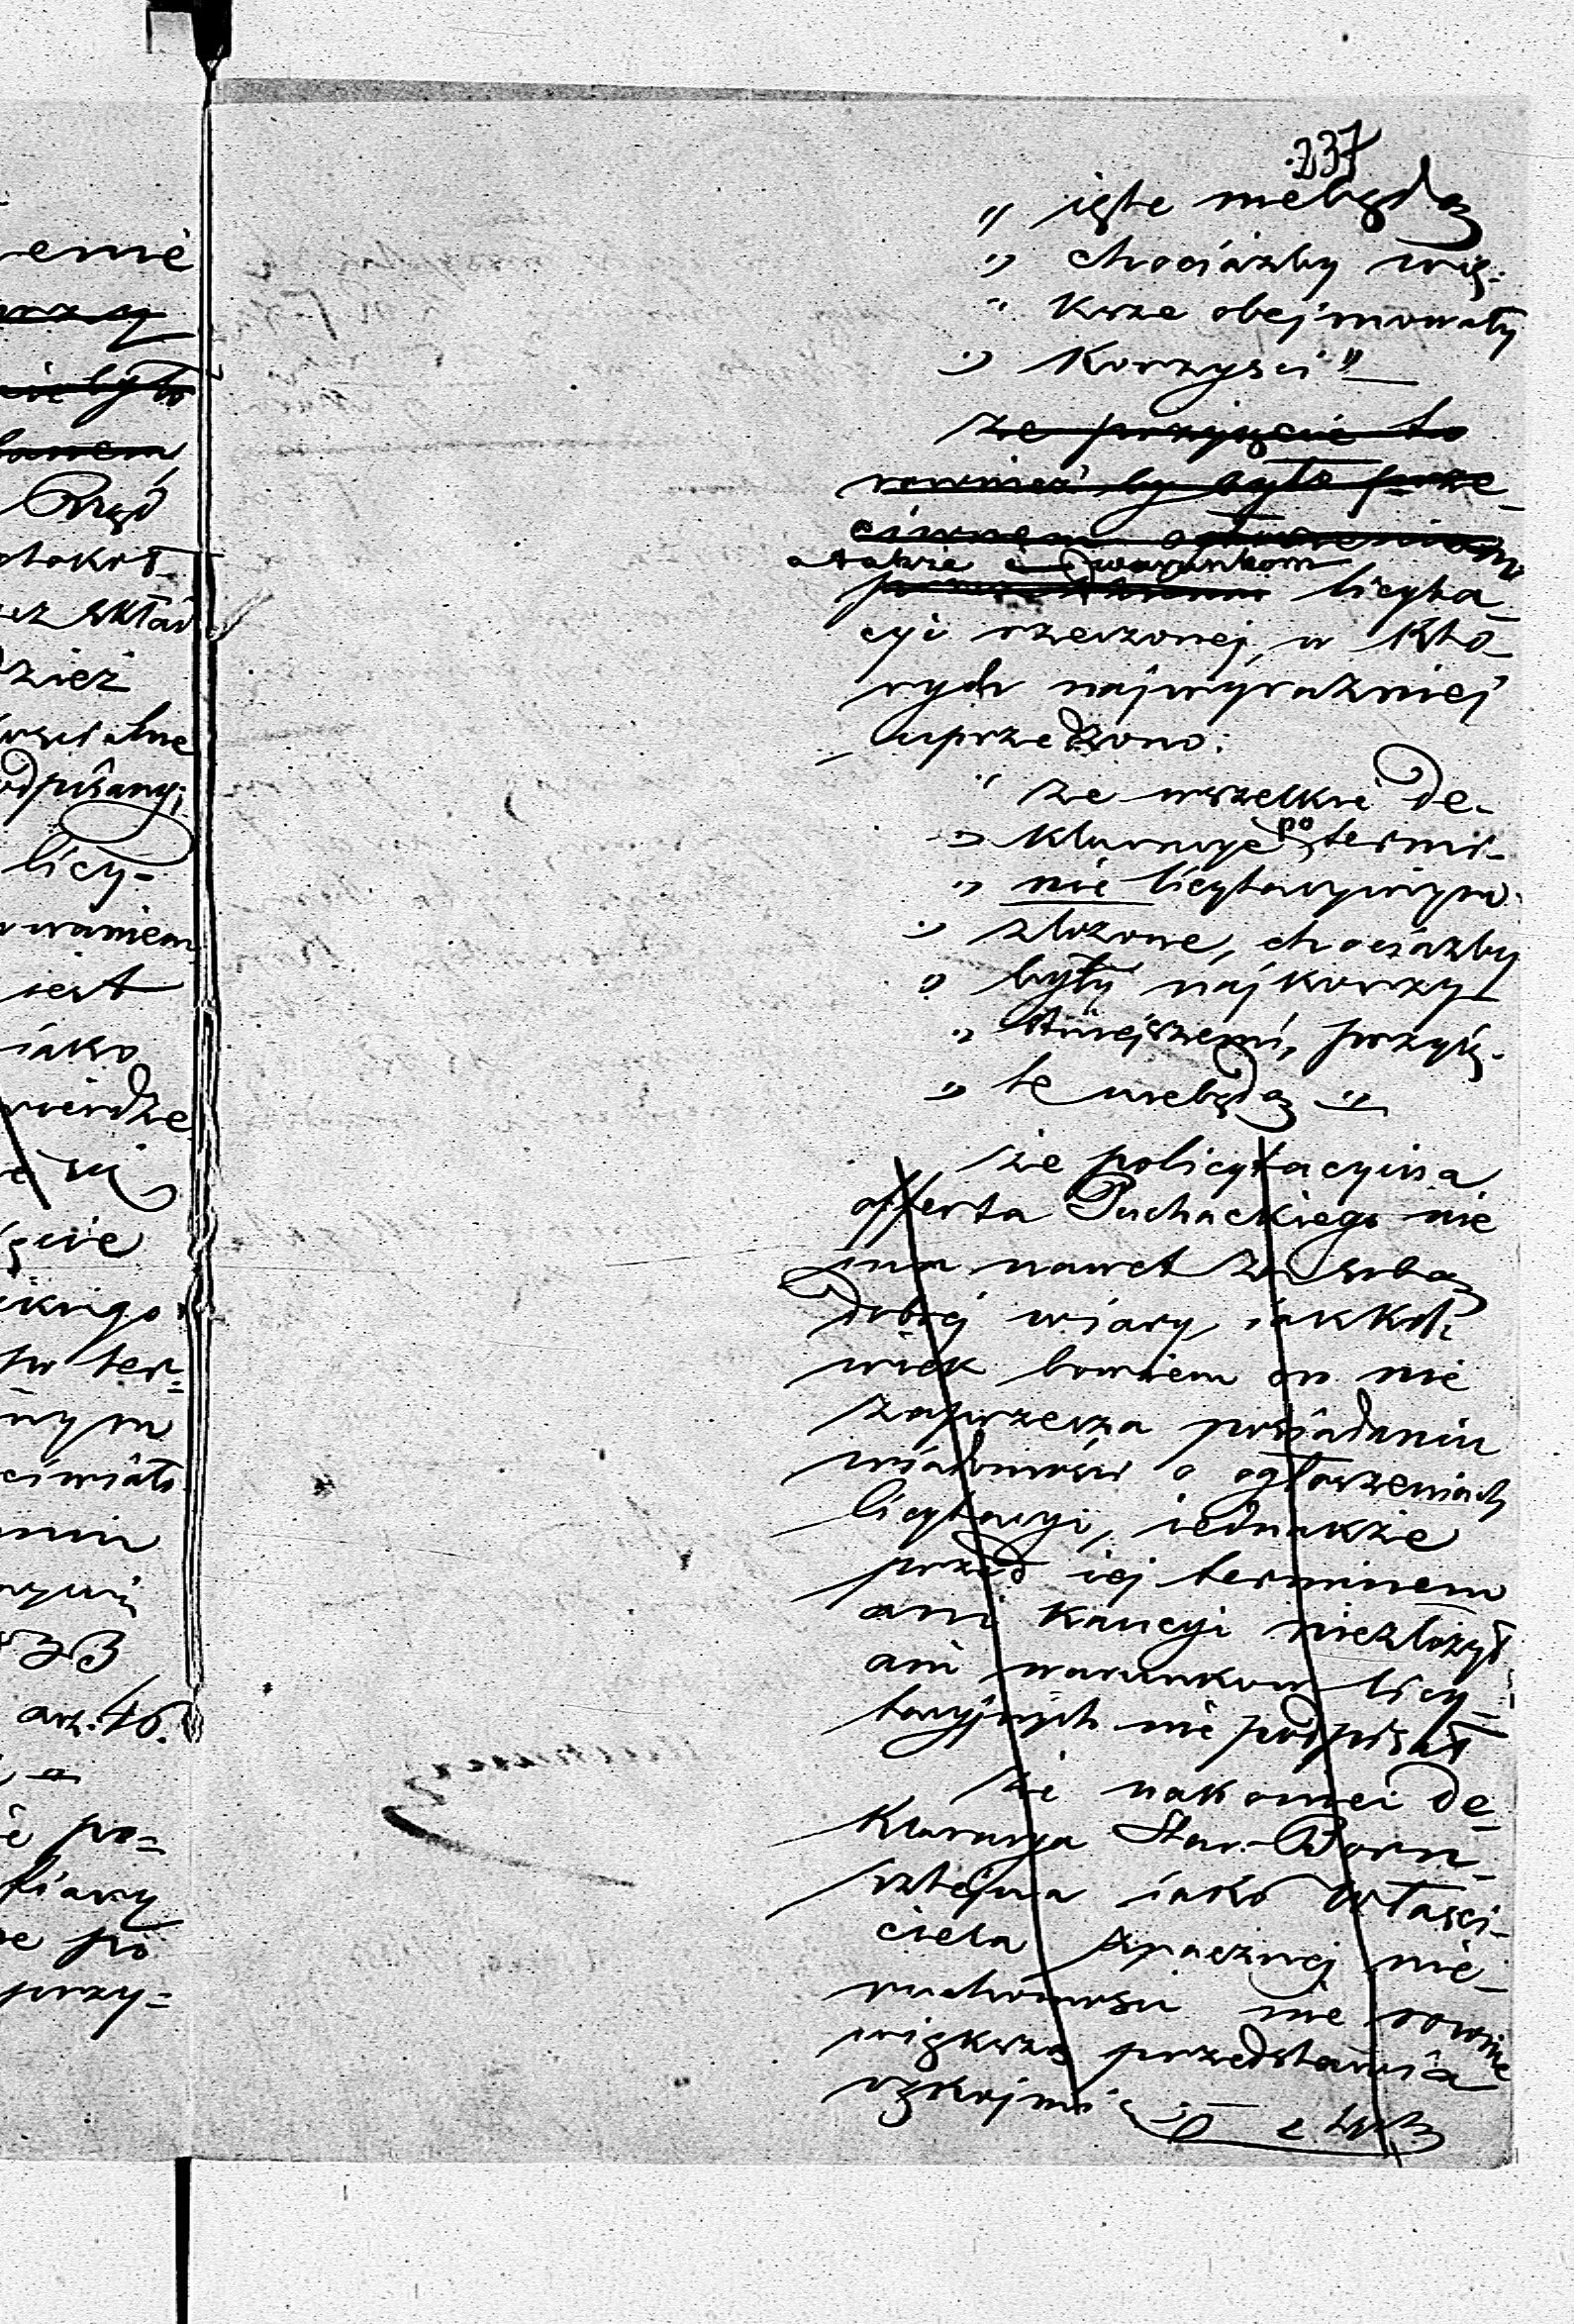 237
„ ięte niebędą
„ chociażby więː
„ ksze obejmowały
„ Korzyści"
że przyjęcie to
rownież by było prze-
ciwnem ogłoszeniom
a także warunkom
licyta-
cyi rzeczonej, w któ-
rych najwyraźniej
uprzedzono:
„ że wszelkie de-
„ klaracye po termi-
„ nie licytacyinym
„ złożone, chociażby
„ były najkorzy-
„ stniejszemi, przyię-
„ te niebędą "
że policytacyina
offerta Puchackiego nie
ma nawet za sobą
dobrej wiary, iakkol-
wiek bowiem on nie
zaprzecza posiadaniu
wiadomości o ogłoszeniach
licytacyi, iednakże
przed iej terminem
ani kaucyi niezłożył
ani warunkow licy-
tacyjnych nie podpisał
że nakoniec de-
klaracya Star. Born-
sztejna iako właści-
ciela znacznej nie-
ruchomości nie rownie
większą przedstawia
rękojmi
enie
Rząd
protokoł
skład
dzież
podpisany;
licy-
waniem
iest
iako
twierdze
się
ęcie
kiego
po ter-
nym
ciwiało
art. 46.
ie po-
fiary
po
przy-